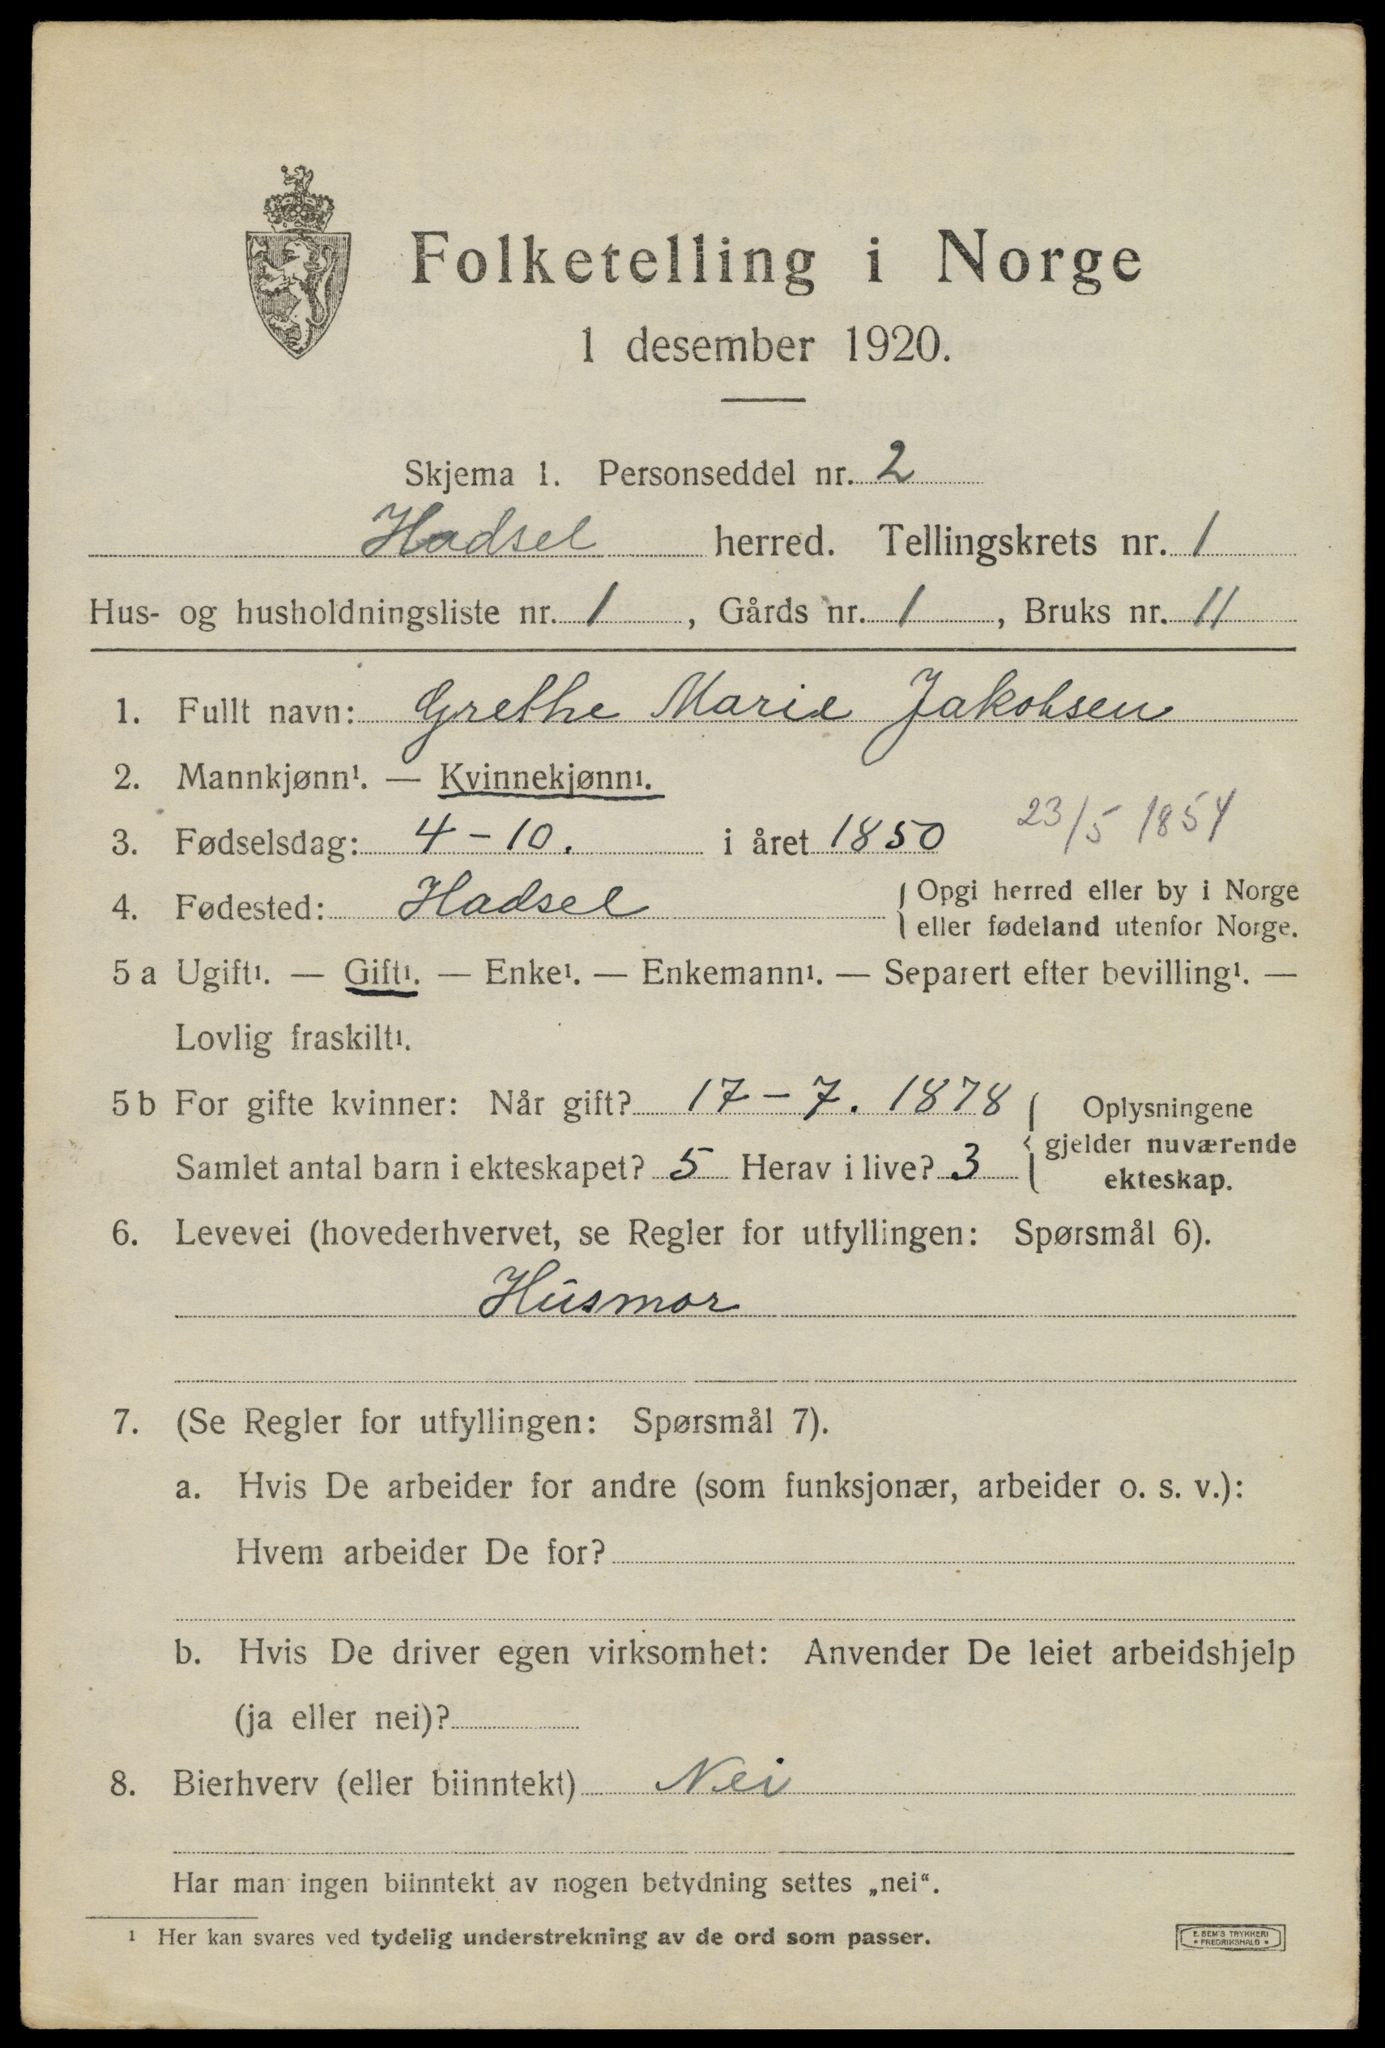 Folketelling i Norge
1 desember 1920.
Skjema 1. Personseddel nr. 2
Hadsel herred. Tellingskrets nr. 1
Hus- og husholdningsliste nr. 1, Gårds nr. 1, Bruks nr. 11
1. Fullt navn: Grethe Marie Jakobsen
2. Mannkjønn¹. — Kvinnekjønn¹.
3. Fødselsdag: 4-10. i året 1850 23/5 1854
4. Fødested: Hadsel
Opgi herred eller by i Norge
eller fødeland utenfor Norge.
5 a Ugift¹. — Gift¹. — Enke¹. — Enkemann¹. — Separert efter bevilling¹. —
Lovlig fraskilt¹.
5 b For gifte kvinner: Når gift? 17-7. 1878
Samlet antal barn i ekteskapet? 5 Herav i live? 3
Oplysningene
gjelder nuværende
ekteskap.
6. Levevei (hovederhvervet, se Regler for utfyllingen: Spørsmål 6).
Husmor
7. (Se Regler for utfyllingen: Spørsmål 7).
a. Hvis De arbeider for andre (som funksjonær, arbeider o. s. v.):
Hvem arbeider De for?
b. Hvis De driver egen virksomhet: Anvender De leiet arbeidshjelp
(ja eller nei)?
8. Bierhverv (eller biinntekt) Nei
Har man ingen biinntekt av nogen betydning settes „nei“.
¹ Her kan svares ved tydelig understrekning av de ord som passer.
E. SEM'S TRYKKERI
* FREDRIKSHALD *